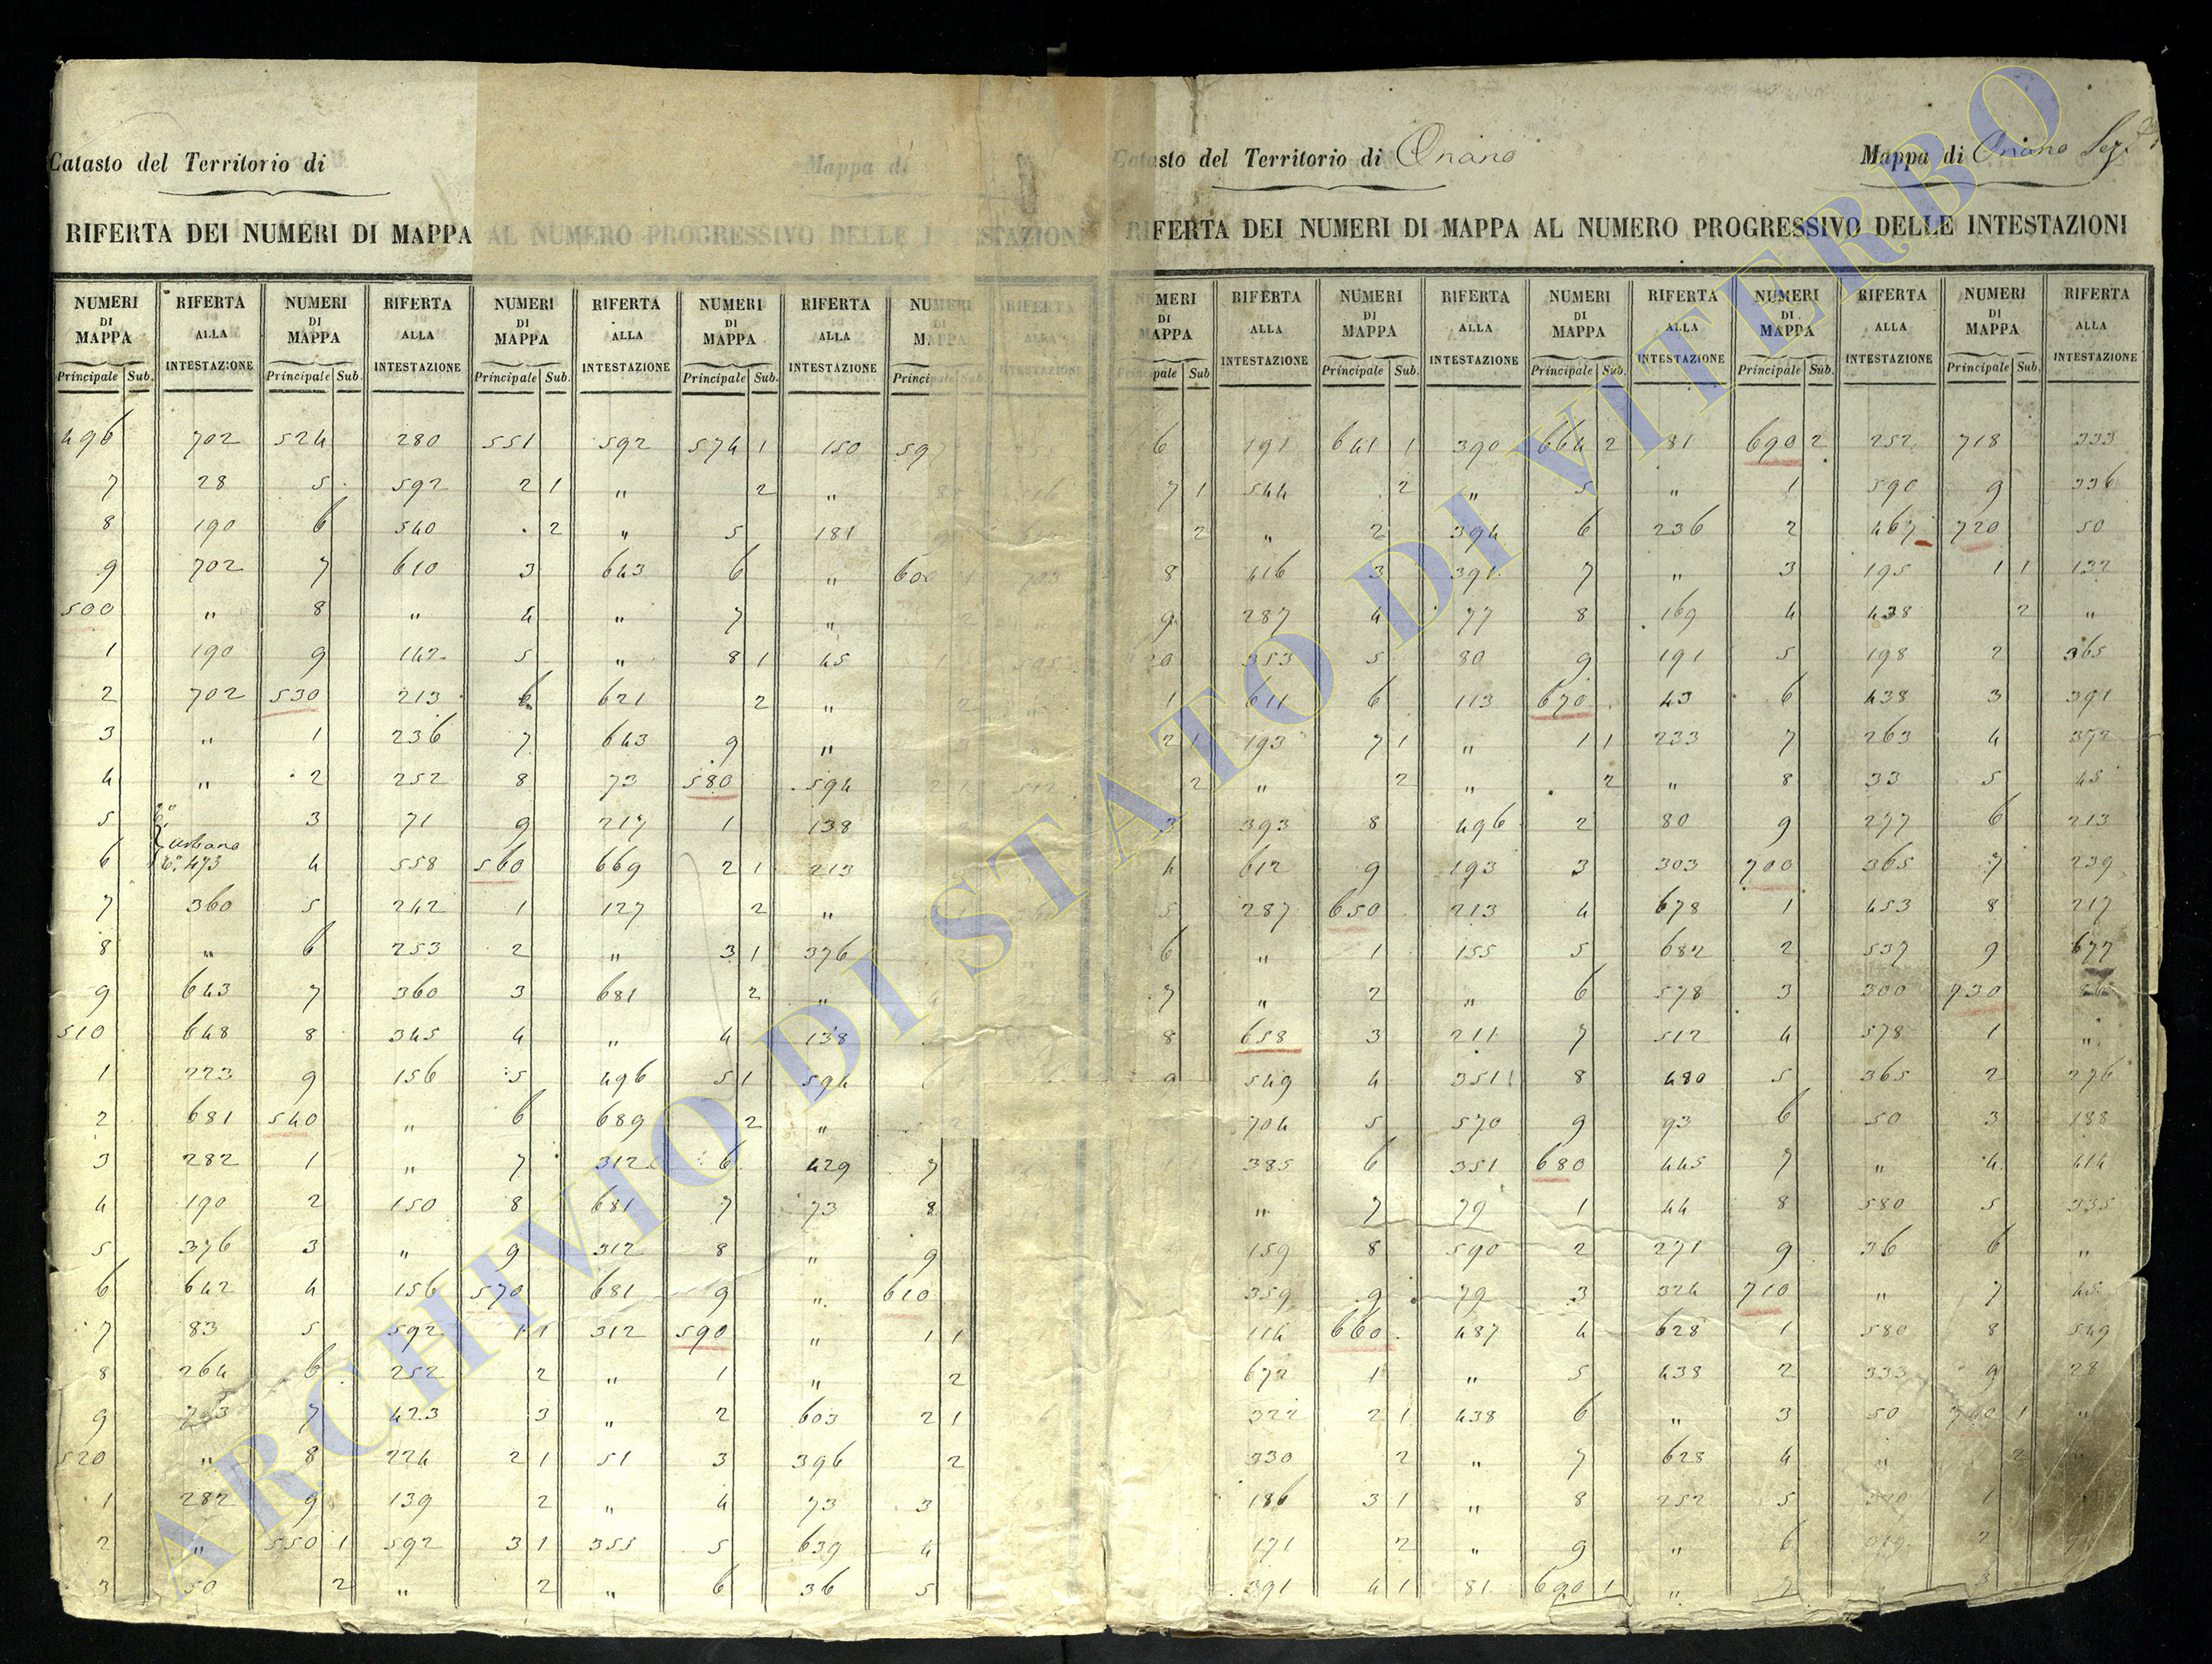 Catasto del Territorio di
Mappa di
RIFERTA DEI NUMERI DI MAPPA AL NUMERO PROGRESSIVO DELLE INTESTAZIONI
NUMERI DI MAPPA RIFERTA ALLA INTESTAZIONE NUMERI DI MAPPA RIFERTA ALLA INTESTAZIONE NUMERI DI MAPPA RIFERTA ALLA INTESTAZIONE NUMERI DI MAPPA RIFERTA ALLA INTESTAZIONE
Principale Sub. Principale Sub. Principale Sub. Principale Sub.
496 702 524 280 551 592 574 1 150 597
7 28 5 592 2 1 " 2 "
8 190 6 540 2 " 5 181
9 702 7 610 3 643 6 " 600
500 " 8 " 4 " 7 "
1 190 9 142 5 " 8 1 45
2 702 530 213 6 621 2 "
3 " 1 236 7 643 9 "
4 " 2 252 8 73 580 594
5 3 71 9 217 1 138
urbano
6 473 4 558 560 669 2 1 213
7 360 5 242 1 127 2 "
8 " 6 253 2 " 3 1 376
9 643 7 360 3 681 2 "
510 648 8 345 4 " 4 138
1 223 9 156 5 496 5 1 594
2 681 540 " 6 689 2 "
3 282 1 " 7 312 6 429 7
4 190 2 150 8 681 7 73 8
5 376 3 " 9 312 8 " 9
6 642 4 156 570 681 9 " 610
7 83 5 592 1 1 312 590 " 1 1
8 264 6 252 2 " 1 " 2
9 7 423 3 " 2 603 2 1
520 " 8 224 2 1 51 3 396 2
1 282 9 139 2 " 4 73 3
2 " 550 1 592 3 1 355 5 639 4
3 50 2 " 2 " 6 36 5
Catasto del Territorio di Onano
Mappa di Onano Sez.
RIFERTA DEI NUMERI DI MAPPA AL NUMERO PROGRESSIVO DELLE INTESTAZIONI
NUMERI DI MAPPA RIFERTA ALLA INTESTAZIONE NUMERI DI MAPPA RIFERTA ALLA INTESTAZIONE NUMERI DI MAPPA RIFERTA ALLA INTESTAZIONE NUMERI DI MAPPA RIFERTA ALLA INTESTAZIONE NUMERI DI MAPPA RIFERTA ALLA INTESTAZIONE
Principale Sub Principale Sub. Principale Sub. Principale Sub. Principale Sub.
6 191 641 1 390 664 2 81 690 2 252 718 333
7 1 544 2 " 5 " 1 590 9 336
2 " 2 394 6 236 2 467 720 50
8 416 3 391 7 " 3 195 1 1 132
9 287 4 77 8 169 4 438 2 "
20 353 5 80 9 191 5 198 2 365
1 611 6 113 670 43 6 438 3 391
2 1 193 7 1 " 1 1 233 7 263 4 372
2 " 2 " 2 " 8 33 5 45
3 393 8 496 2 80 9 277 6 213
4 612 9 193 3 303 700 365 7 239
5 287 650 213 4 678 1 453 8 217
6 " 1 155 5 682 2 537 9 677
7 " 2 " 6 578 3 300 730
8 658 3 211 7 512 4 578 1 "
9 549 4 351 8 480 5 365 2 276
704 5 570 9 93 6 50 3 188
385 6 351 680 445 7 " 4 414
" 7 79 1 44 8 580 5 335
159 8 590 2 271 9 36 6 "
359 9 79 3 324 710 " 7 45
114 660 487 4 628 1 580 8 549
672 1 " 5 438 2 333 9 28
322 2 1 438 6 " 3 50 740 1 "
330 2 " 7 628 4 " 2 "
186 3 1 " 8 252 5 1
171 2 " 9 " 6 2
391 4 1 81 690 1 " 7 3
ARCHIVIO DI STATO DI VITERBO